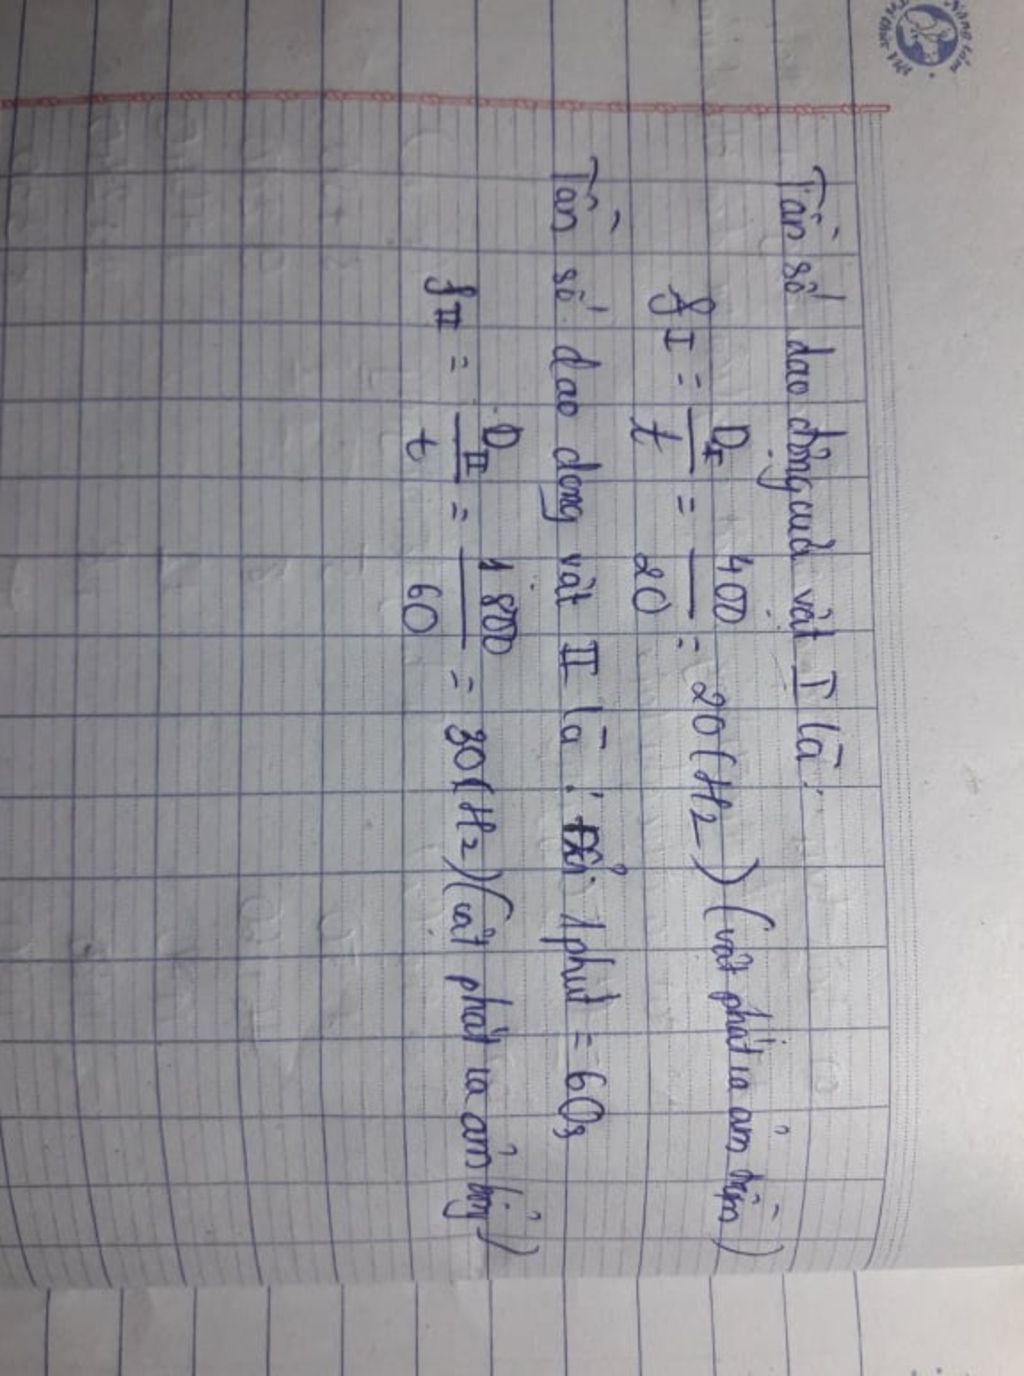 Tần số dao động của vật I là:
f I = DI / t = 400 / 20 = 20 (Hz) (vật phát ra âm trầm)
Tần số dao dong vật II là : 1 phút = 60s
f II = DII / t = 1800 / 60 = 30 (Hz) (vật phát ra âm bổng)